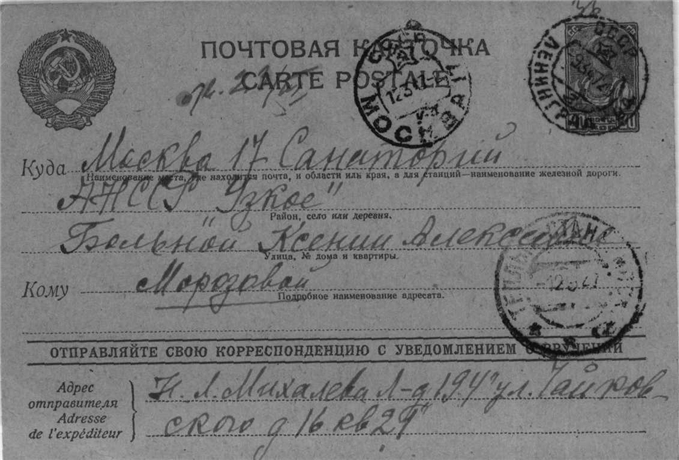 ПОЧТОВАЯ КАРТОЧКА
CARTE POSTALE
СССР
МОСКВА
СССР
ЛЕНИНГРАД
Куда Москва 17 Санаторий
Наименование места, где находится почта, и области или края, а для станций—наименование железной дороги.
АНСССР "Узкое"
Район, село или деревня.
Больной Ксении
Улица, № дома и квартиры.
Кому Морозовой
Подробное наименование адресата.
ОТПРАВЛЯЙТЕ СВОЮ КОРРЕСПОНДЕНЦИЮ С УВЕДОМЛЕНИЕМ О ВРУЧЕНИИ
Адрес
отправителя
Adresse
de l'expéditeur
Н. Л. Михалева Л-д 194 ул. Чайков-
ского д 16 кв 29